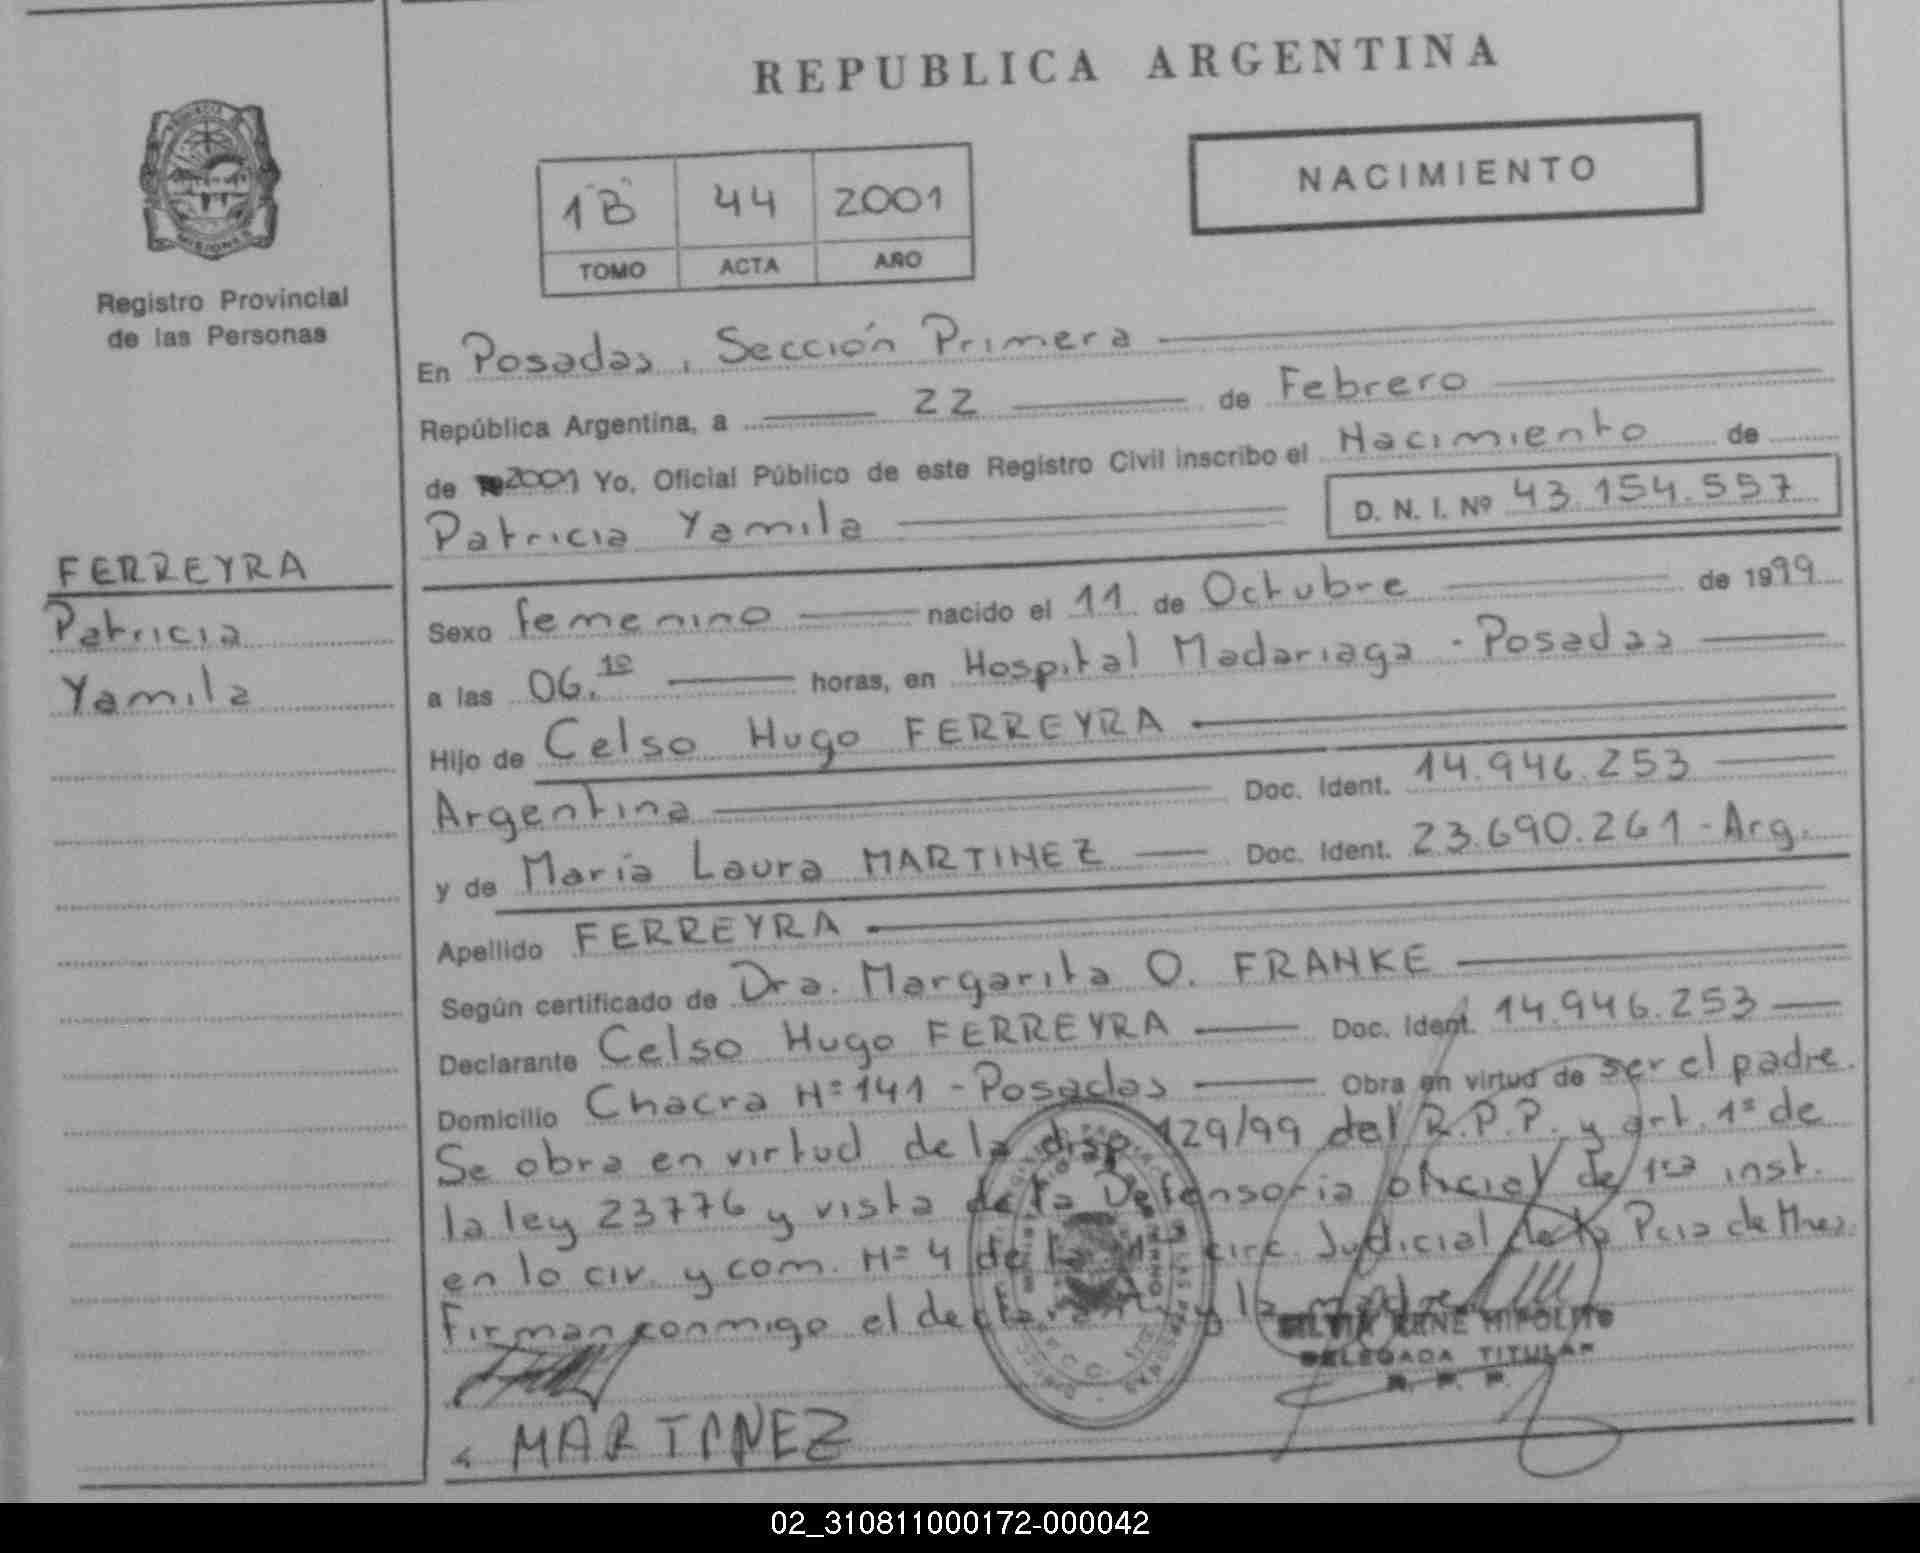 REPUBLICA ARGENTINA
NACIMIENTO
1"B" 44 2001
TOMO ACTA AÑO
MISIONES
Registro Provincial
de las Personas
En Posadas, Sección Primera
República Argentina, a 22 de Febrero
de 2001 Yo, Oficial Público de este Registro Civil inscribo el Nacimiento de
Patricia Yamila D. N. I. Nº 43.154.557
FERREYRA
Patricia
Yamila
Sexo femenino nacido el 11 de Octubre de 1999
a las 06.10 horas, en Hospital Madariaga - Posadas
Hijo de Celso Hugo FERREYRA
Argentina Doc. Ident. 14.946.253
y de María Laura MARTINEZ Doc. Ident. 23.690.261 - Arg.
Apellido FERREYRA
Según certificado de Dra. Margarita O. FRANKE
Declarante Celso Hugo FERREYRA Doc. Ident. 14.946.253
Domicilio Chacra Nº 141 - Posadas Obra en virtud de ser el padre.
Se obra en virtud de la disp 129/99 del R.P.P. y art. 1º de
la ley 23776 y vista de la Defensoria oficial de 1ra inst.
en lo civ. y com. Nº 4 de la circ. Judicial de la Pcia de Mnes.
Firman conmigo el declarante y la madre
SILVIA RENE HIPOLITO
DELEGADA TITULAR
R. P. P.
MARTINEZ
02_310811000172-000042